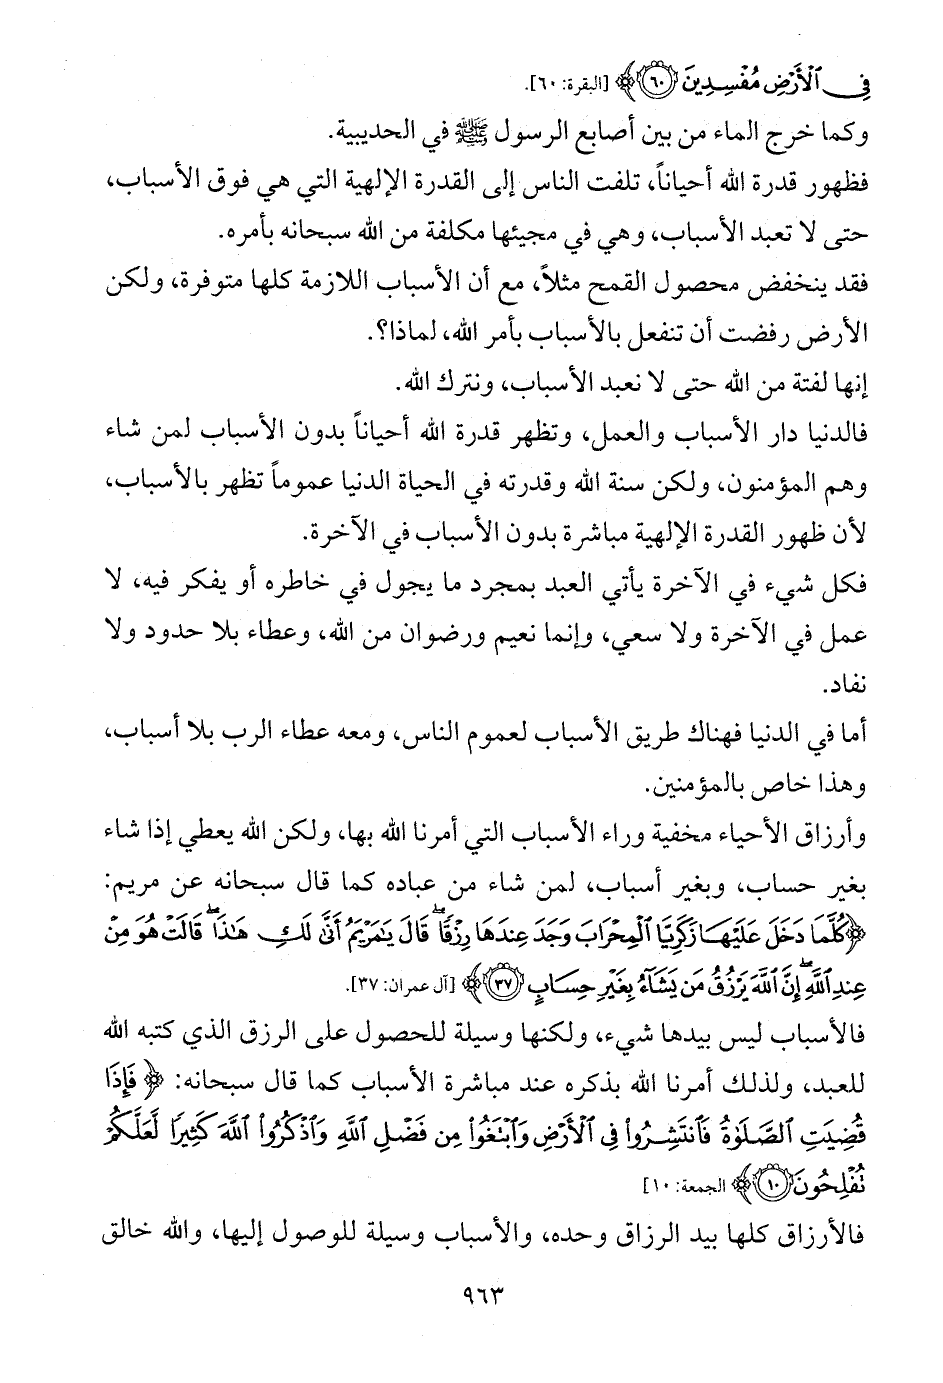 فِي ٱلْأَرْضِ مُفْسِدِينَ ﴿٦٠﴾ [البقرة: ٦٠].
وكما خرج الماء من بين أصابع الرسول ﷺ في الحديبية.
فظهور قدرة الله أحياناً، تلفت الناس إلى القدرة الإلهية التي هي فوق الأسباب،
حتى لا تعبد الأسباب، وهي في مجيئها مكلفة من الله سبحانه بأمره.
فقد ينخفض محصول القمح مثلاً، مع أن الأسباب اللازمة كلها متوفرة، ولكن
الأرض رفضت أن تنفعل بالأسباب بأمر الله، لماذا؟.
إنها لفتة من الله حتى لا نعبد الأسباب، ونترك الله.
فالدنيا دار الأسباب والعمل، وتظهر قدرة الله أحياناً بدون الأسباب لمن شاء
وهم المؤمنون، ولكن سنة الله وقدرته في الحياة الدنيا عموماً تظهر بالأسباب،
لأن ظهور القدرة الإلهية مباشرة بدون الأسباب في الآخرة.
فكل شيء في الآخرة يأتي العبد بمجرد ما يجول في خاطره أو يفكر فيه، لا
عمل في الآخرة ولا سعي، وإنما نعيم ورضوان من الله، وعطاء بلا حدود ولا
نفاد.
أما في الدنيا فهناك طريق الأسباب لعموم الناس، ومعه عطاء الرب بلا أسباب،
وهذا خاص بالمؤمنين.
وأرزاق الأحياء مخفية وراء الأسباب التي أمرنا الله بها، ولكن الله يعطي إذا شاء
بغير حساب، وبغير أسباب، لمن شاء من عباده كما قال سبحانه عن مريم:
﴿كُلَّمَا دَخَلَ عَلَيْهَا زَكَرِيَّا ٱلْمِحْرَابَ وَجَدَ عِندَهَا رِزْقًا ۖ قَالَ يَٰمَرْيَمُ أَنَّىٰ لَكِ هَٰذَا ۖ قَالَتْ هُوَ مِنْ
عِندِ ٱللَّهِ ۖ إِنَّ ٱللَّهَ يَرْزُقُ مَن يَشَآءُ بِغَيْرِ حِسَابٍ ﴿٣٧﴾ [آل عمران: ٣٧].
فالأسباب ليس بيدها شيء، ولكنها وسيلة للحصول على الرزق الذي كتبه الله
للعبد، ولذلك أمرنا الله بذكره عند مباشرة الأسباب كما قال سبحانه: ﴿فَإِذَا
قُضِيَتِ ٱلصَّلَوٰةُ فَٱنتَشِرُوا۟ فِي ٱلْأَرْضِ وَٱبْتَغُوا۟ مِن فَضْلِ ٱللَّهِ وَٱذْكُرُوا۟ ٱللَّهَ كَثِيرًا لَّعَلَّكُمْ
تُفْلِحُونَ ﴿١٠﴾ الجمعة: ١٠]
فالأرزاق كلها بيد الرزاق وحده، والأسباب وسيلة للوصول إليها، والله خالق
٩٦٣